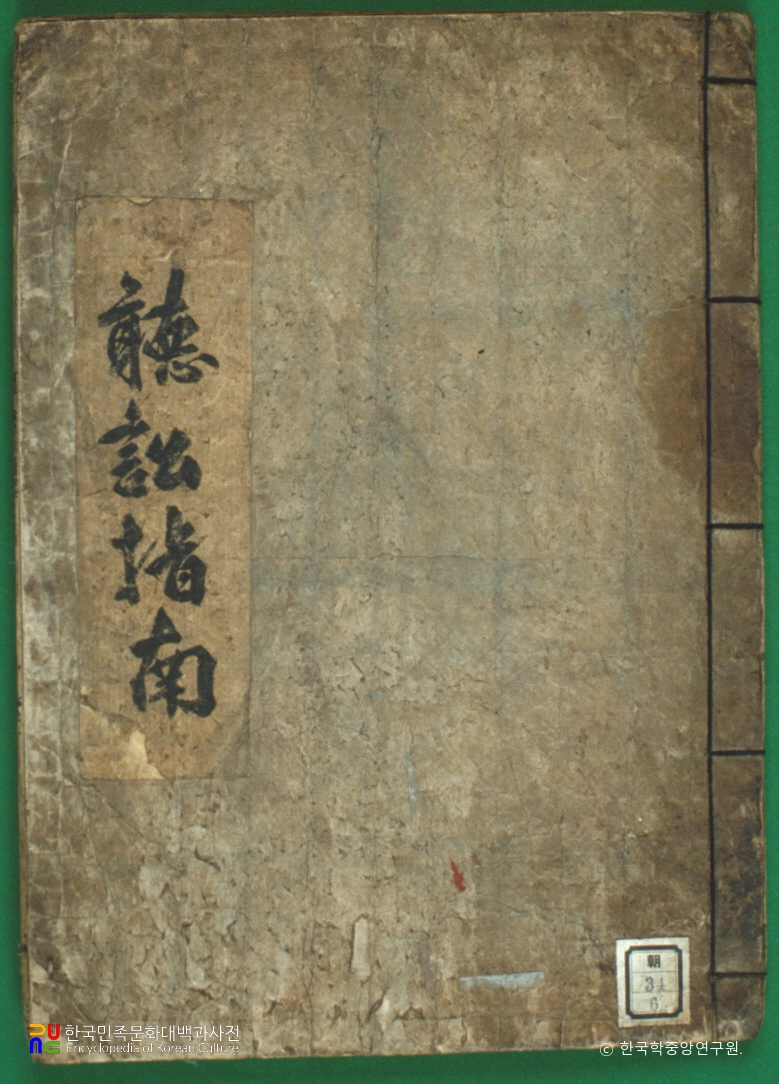 聽訟指南
朝
31
6
한국민족문화대백과사전
Encyclopedia of Korean Culture
© 한국학중앙연구원.